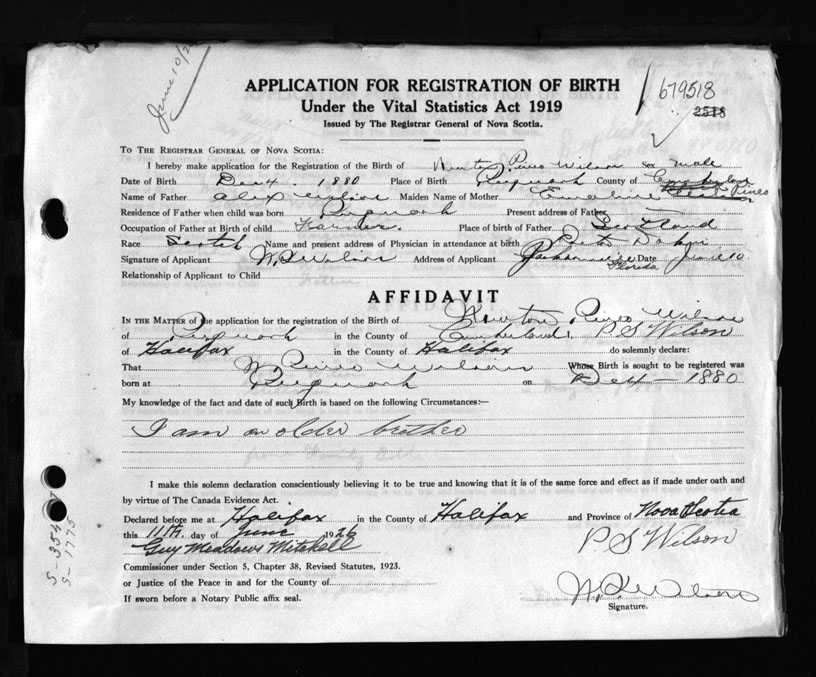 June 10/2
APPLICATION FOR REGISTRATION OF BIRTH
Under the Vital Statistics Act 1919
Issued by The Registrar General of Nova Scotia.
679518
2518
TO THE REGISTRAR GENERAL OF NOVA SCOTIA:
I hereby make application for the Registration of the Birth of Newton Pineo Wilson sex male
Date of Birth Dec 4. 1880 Place of Birth Pugwash County of Cumberland
Name of Father Alex Wilson Maiden Name of Mother Emeline Pineo
Residence of Father when child was born Pugwash Present address of Father
Occupation of Father at Birth of child Farmer. Place of birth of Father Scotland
Race Scotch Name and present address of Physician in attendance at birth
Signature of Applicant Address of Applicant Jacksonville Florida Date June 10
Relationship of Applicant to Child
AFFIDAVIT
IN THE MATTER of the application for the registration of Birth of Newton Pineo Wilson
of Pugwash in the County of Cumberland, P.S Wilson
of Halifax in the County of Halifax do solemnly declare:
That N Pineo Wilson Whose Birth is sought to be registered was
born at Pugwash on Dec 4 - 1880
My knowledge of the fact and date of such Birth is based on the following Circumstances:—
I am an older brother
I make this solemn declaration conscientiously believing it to be true and knowing that it is of the same force and effect as if made under oath and
by virtue of The Canada Evidence Act.
Declared before me at Halifax in the County of Halifax and Province of Nova Scotia
this 11th. day of June 1926
Guy Meadows Mitchell
P. S Wilson
Commissioner under Section 5, Chapter 38, Revised Statutes, 1923.
or Justice of the Peace in and for the County of
If sworn before a Notary Public affix seal.
N. P. Wilson
Signature.
S-7775